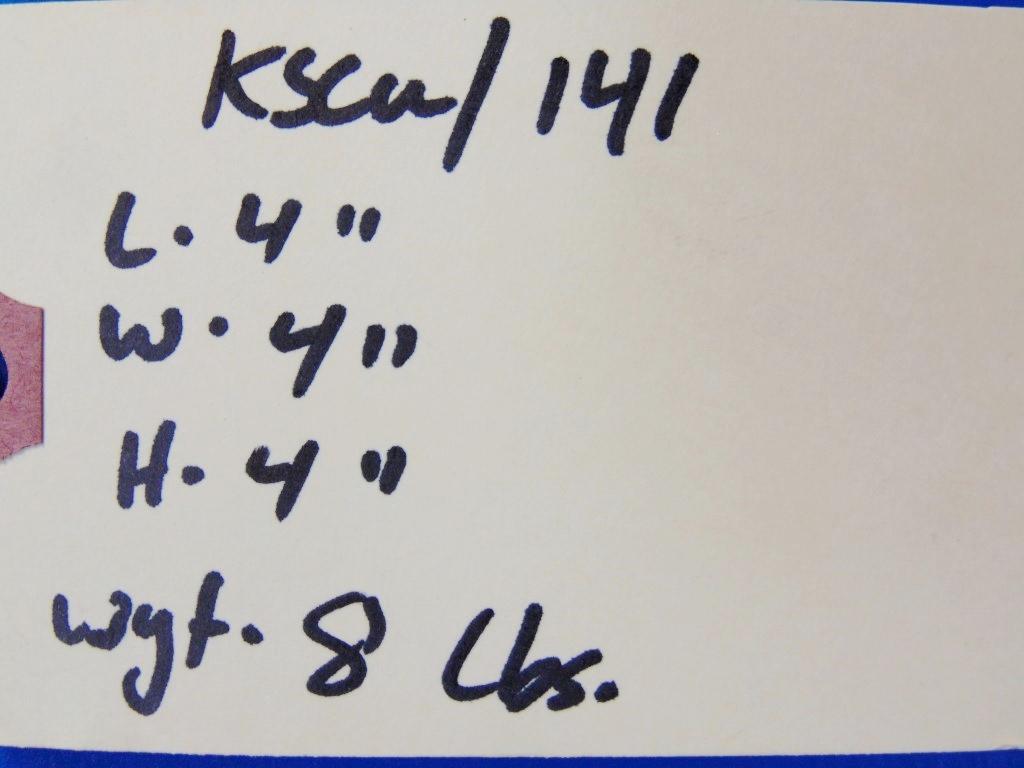 Kscu/141
L. 4"
W. 4"
H. 4"
wgt. 8 Lbs.